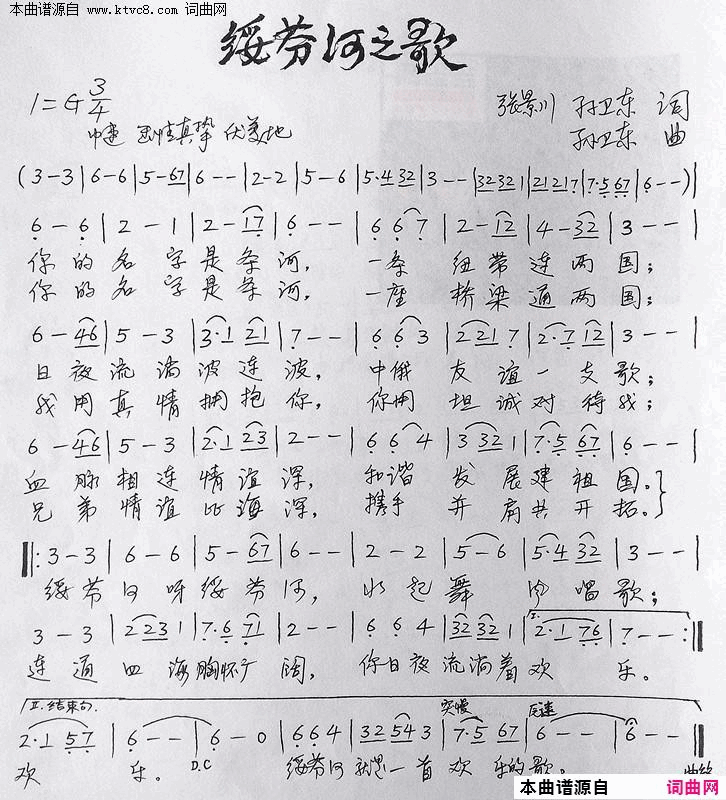 本曲谱源自
www.ktvc8.com 词曲网
绥芬河之歌
1=G 3/4
张景川 孙卫东 词
中速 真挚 优美地
孙卫东 曲
(3-3|6-6|5-67|6--|2-2|5-6|5·432|3--|32321|21217|7·567|6--)|
6-6|2-1|2-17|6--|667|2-12|4-32|3--|
你的名字是条河，一条纽带连两国；
你的名字是条河，一座桥梁通两国；
6-46|5-3|3·121|7--|663|2217|2·712|3--|
日夜流淌波连波，中俄友谊一支歌；
我用真情拥抱你，你用坦诚对待我；
6-46|5-3|2·123|2--|664|3321|7·567|6--|
血脉相连情谊深，和谐发展建祖国。
兄弟情谊比海深，携手并肩共开拓。
‖:3-3|6-6|5-67|6--|2-2|5-6|5·432|3--|
绥芬河呀绥芬河，山起舞 唱歌；
3-3|2231|7·671|2--|664|32321|I.2·176|7--:‖
连通四海胸怀广阔，你日夜流淌着欢乐。
II.结束句.
突慢 原速
2·157|6--|6-0|664|32543|7·567|6--|6--‖
欢乐。D.C 绥芬河就是一首欢乐的歌。
本曲谱源自 词曲网